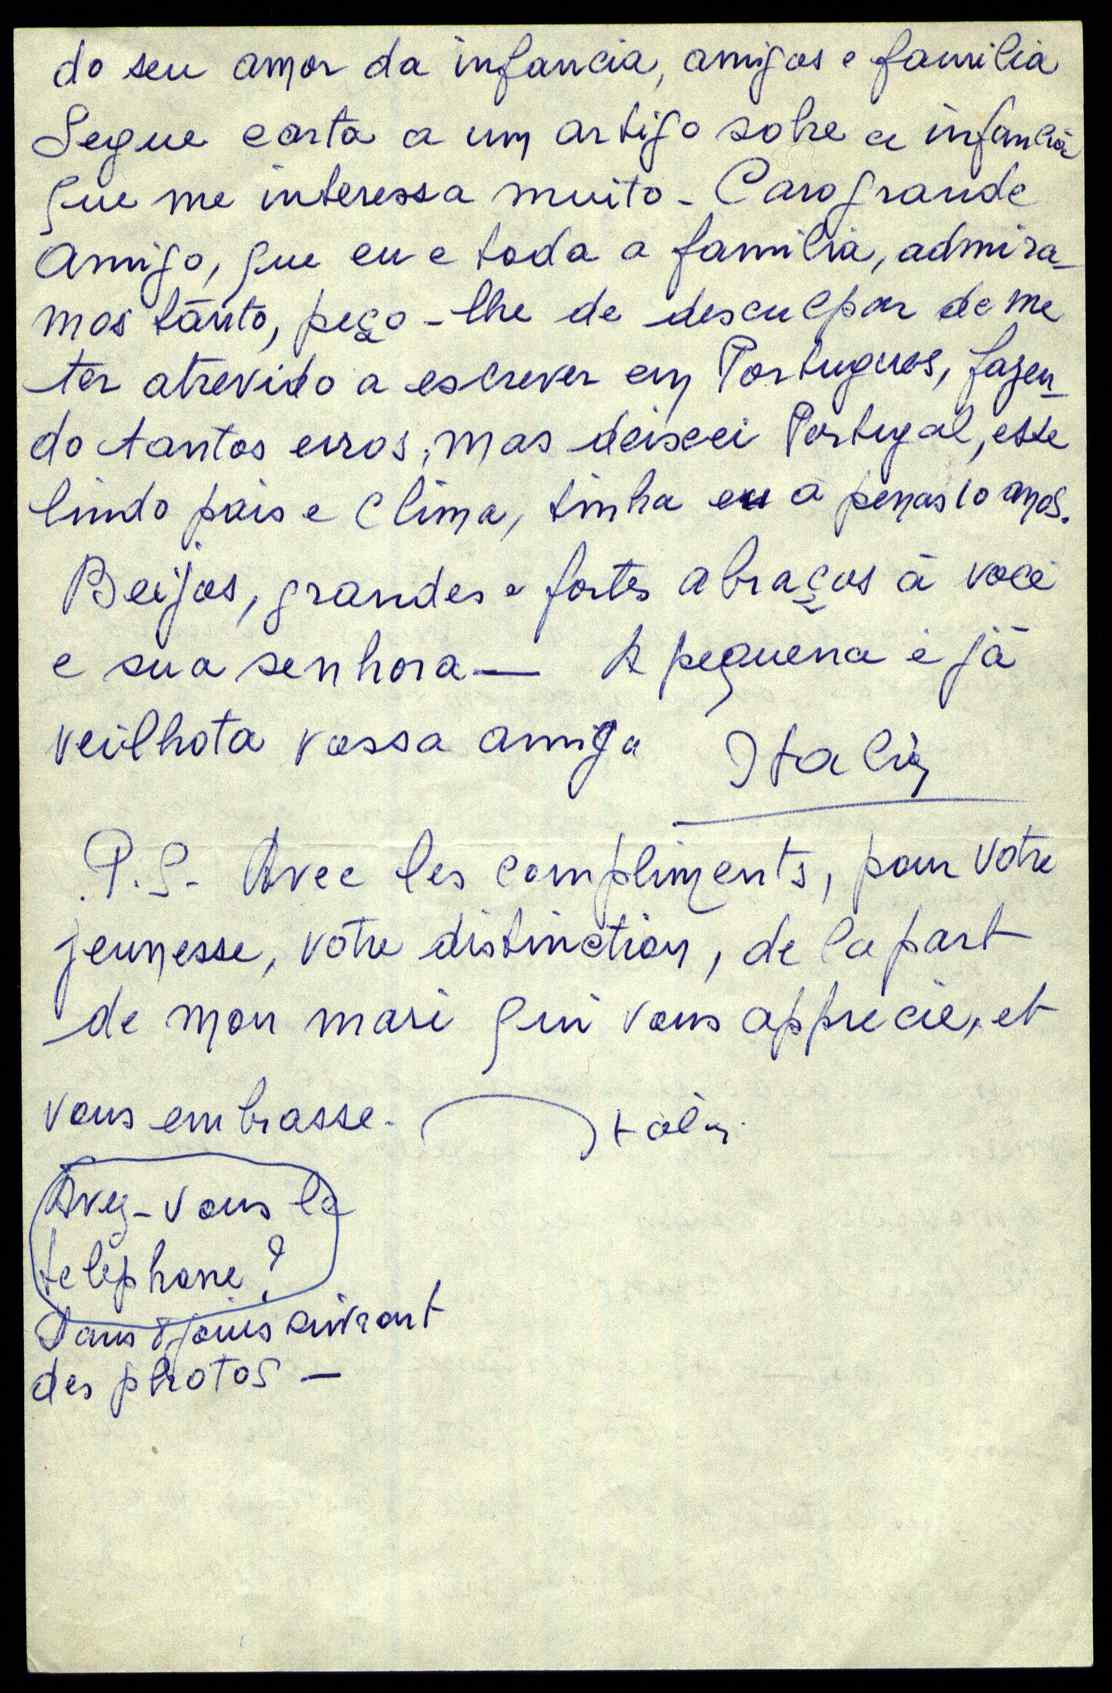 do seu amor da infancia, amigos e familia
Segue carta a um artigo sobre a infancia
que me interessa muito - Caro grande
Amigo, que eu e toda a familia, admira-
mos tanto, peço-lhe de desculpar de me
ter atrevido a escrever em Portugues, fazen-
do tantos erros, mas deixei Portugal, este
lindo pais e clima, tinha eu a penas 10 anos.
Beijos, grandes e fortes abraços à você
e sua senhora — A pequena é já
veilhota vossa amiga Italia
P.S- Avec les compliments, pour votre
jeunesse, votre distinction, de la part
de mon mari qui vous apprecie, et
vous embrasse.
Avez-vous le
telephone?
Dans 8 jours suivront
des photos —